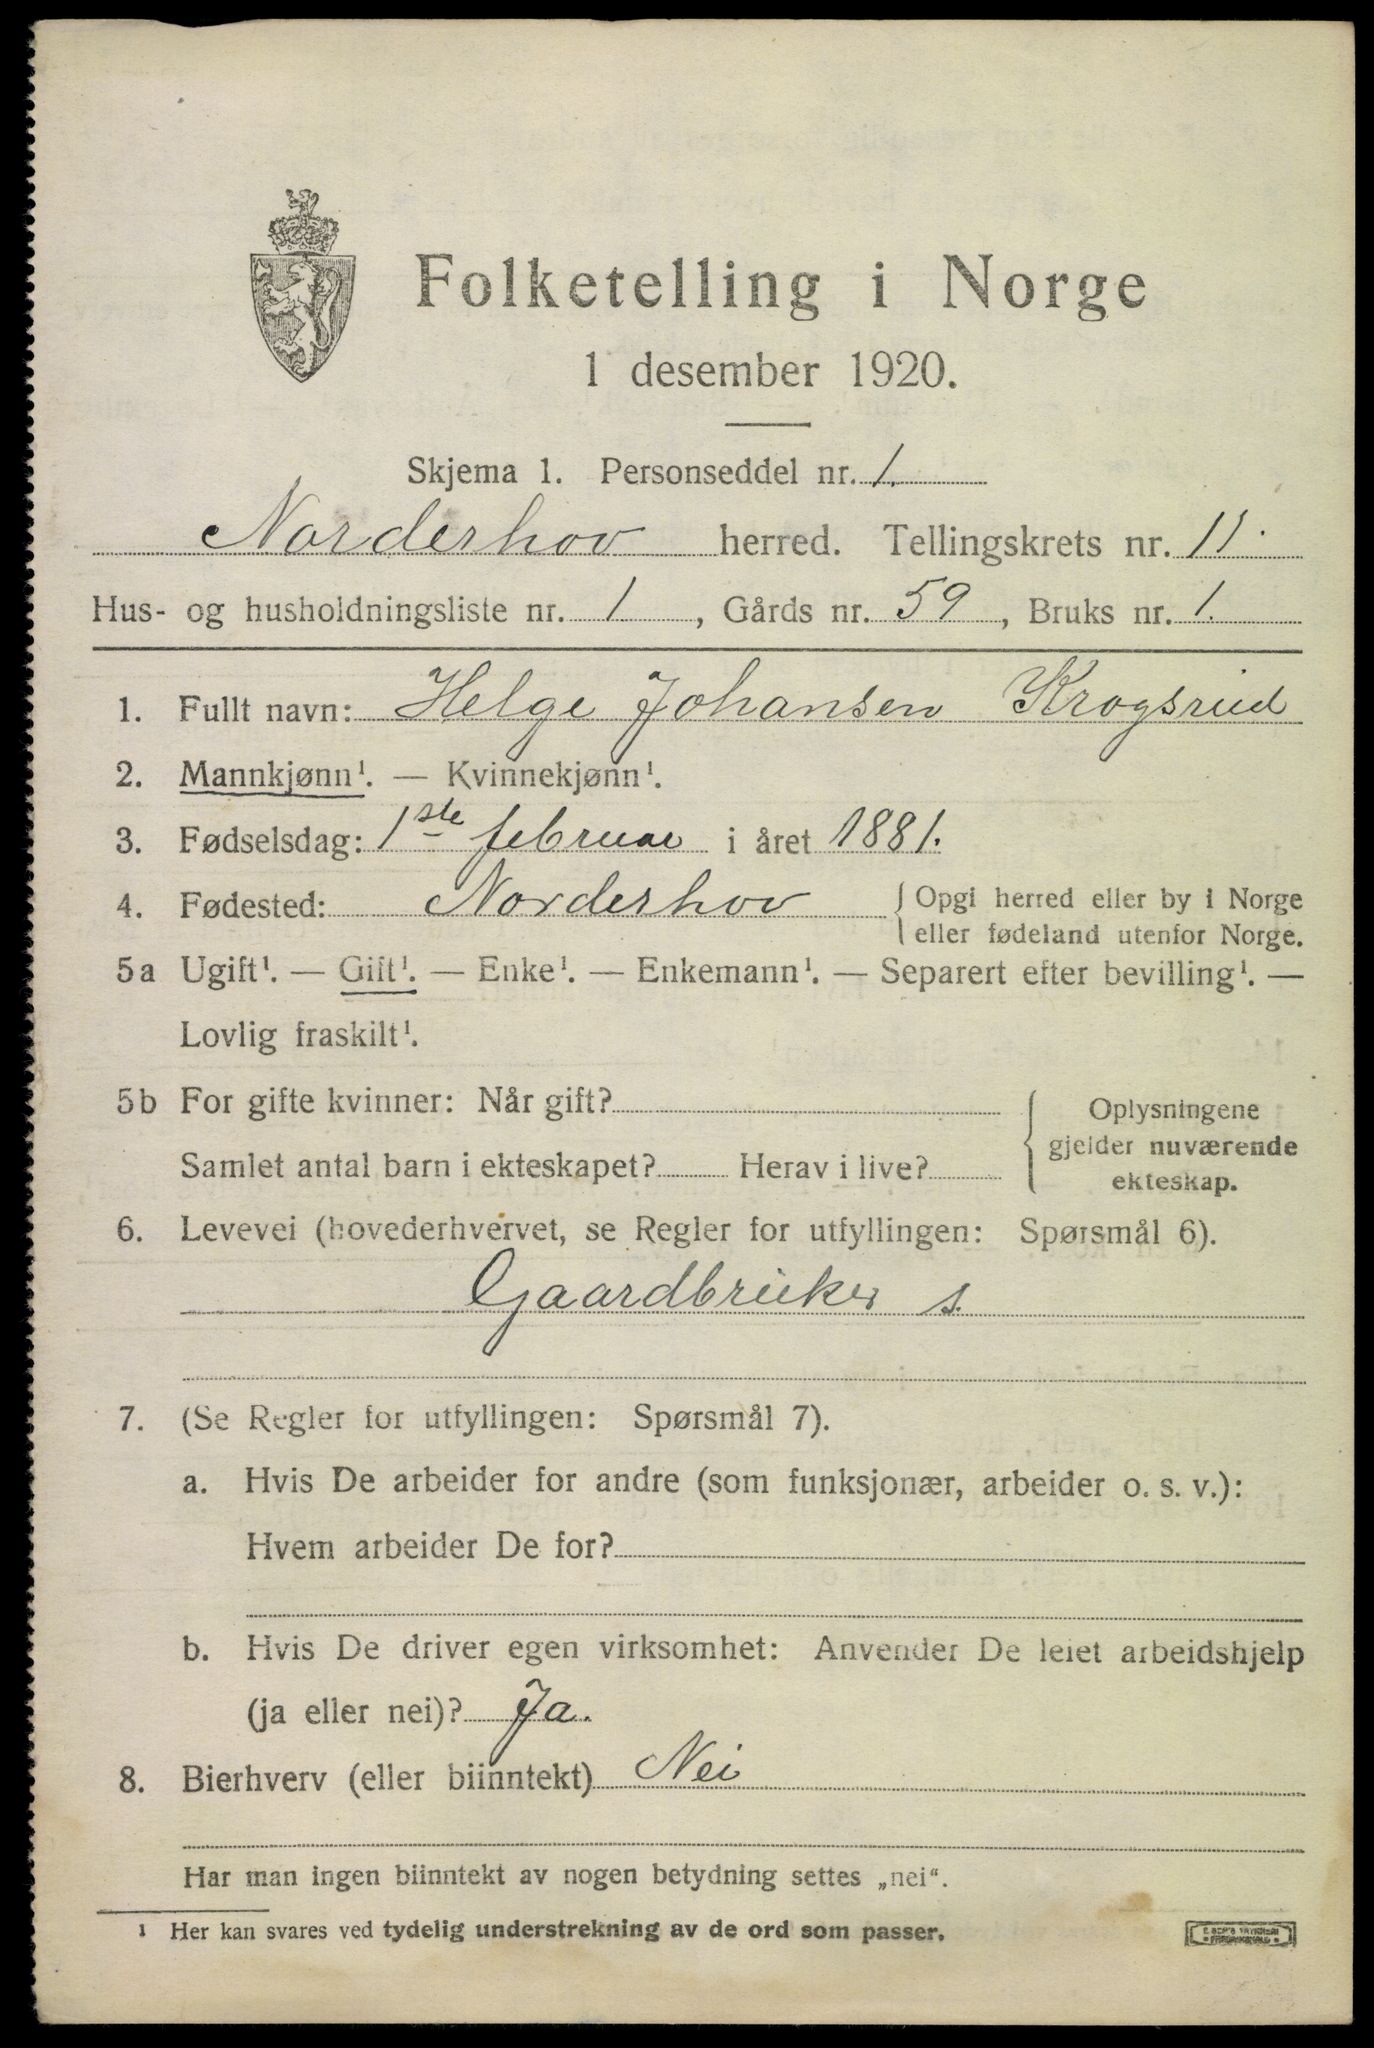 Folketelling i Norge
1 desember 1920.
Skjema 1. Personseddel nr. 1.
Norderhov herred. Tellingskrets nr. 11.
Hus- og husholdningsliste nr. 1, Gårds nr. 59, Bruks nr. 1.
1. Fullt navn: Helge Johansen Krogsrud
2. Mannkjønn¹. — Kvinnekjønn¹.
3. Fødselsdag: 1ste februar i året 1881.
4. Fødested: Norderhov { Opgi herred eller by i Norge
eller fødeland utenfor Norge.
5a Ugift¹. — Gift¹. — Enke¹. — Enkemann¹. — Separert efter bevilling¹. —
Lovlig fraskilt¹.
5b For gifte kvinner: Når gift?
Samlet antal barn i ekteskapet? Herav i live?
{ Oplysningene
gjelder nuværende
ekteskap.
6. Levevei (hovederhvervet, se Regler for utfyllingen: Spørsmål 6).
Gaardbruker s.
7. (Se Regler for utfyllingen: Spørsmål 7).
a. Hvis De arbeider for andre (som funksjonær, arbeider o. s. v.):
Hvem arbeider De for?
b. Hvis De driver egen virksomhet: Anvender De leiet arbeidshjelp
(ja eller nei)? Ja.
8. Bierhverv (eller biinntekt) Nei
Har man ingen biinntekt av nogen betydning settes „nei“.
¹ Her kan svares ved tydelig understrekning av de ord som passer.